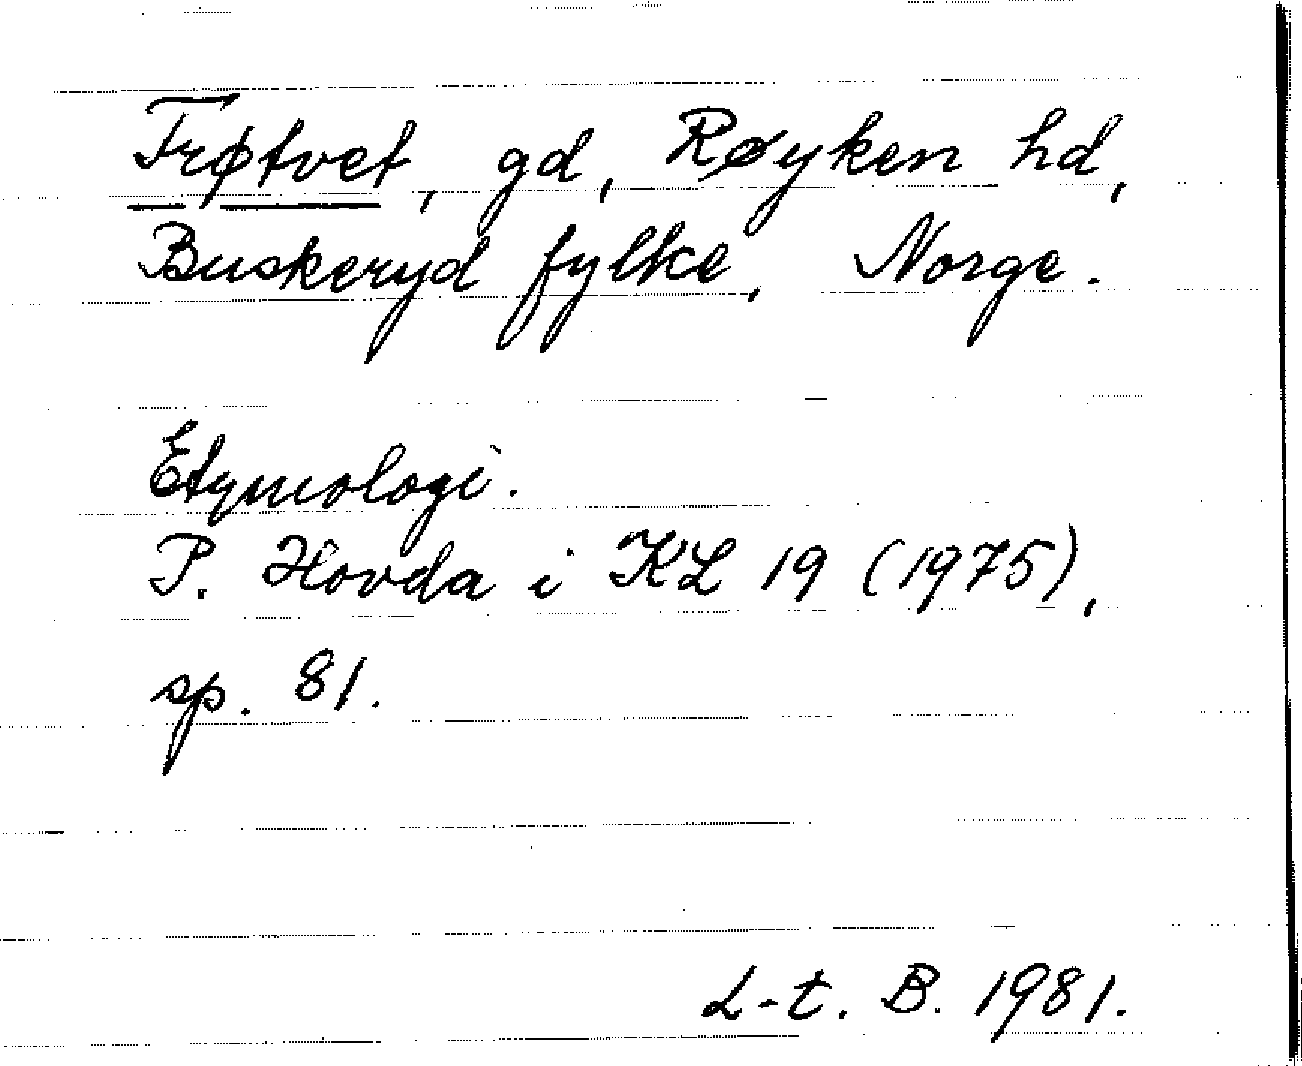 Trøtvet, gd, Røyken hd,
Buskeryd fylke, Norge.
Etymologi.
P. Hovda i KL 19 (1975),
sp. 81.
L-t. B. 1981.